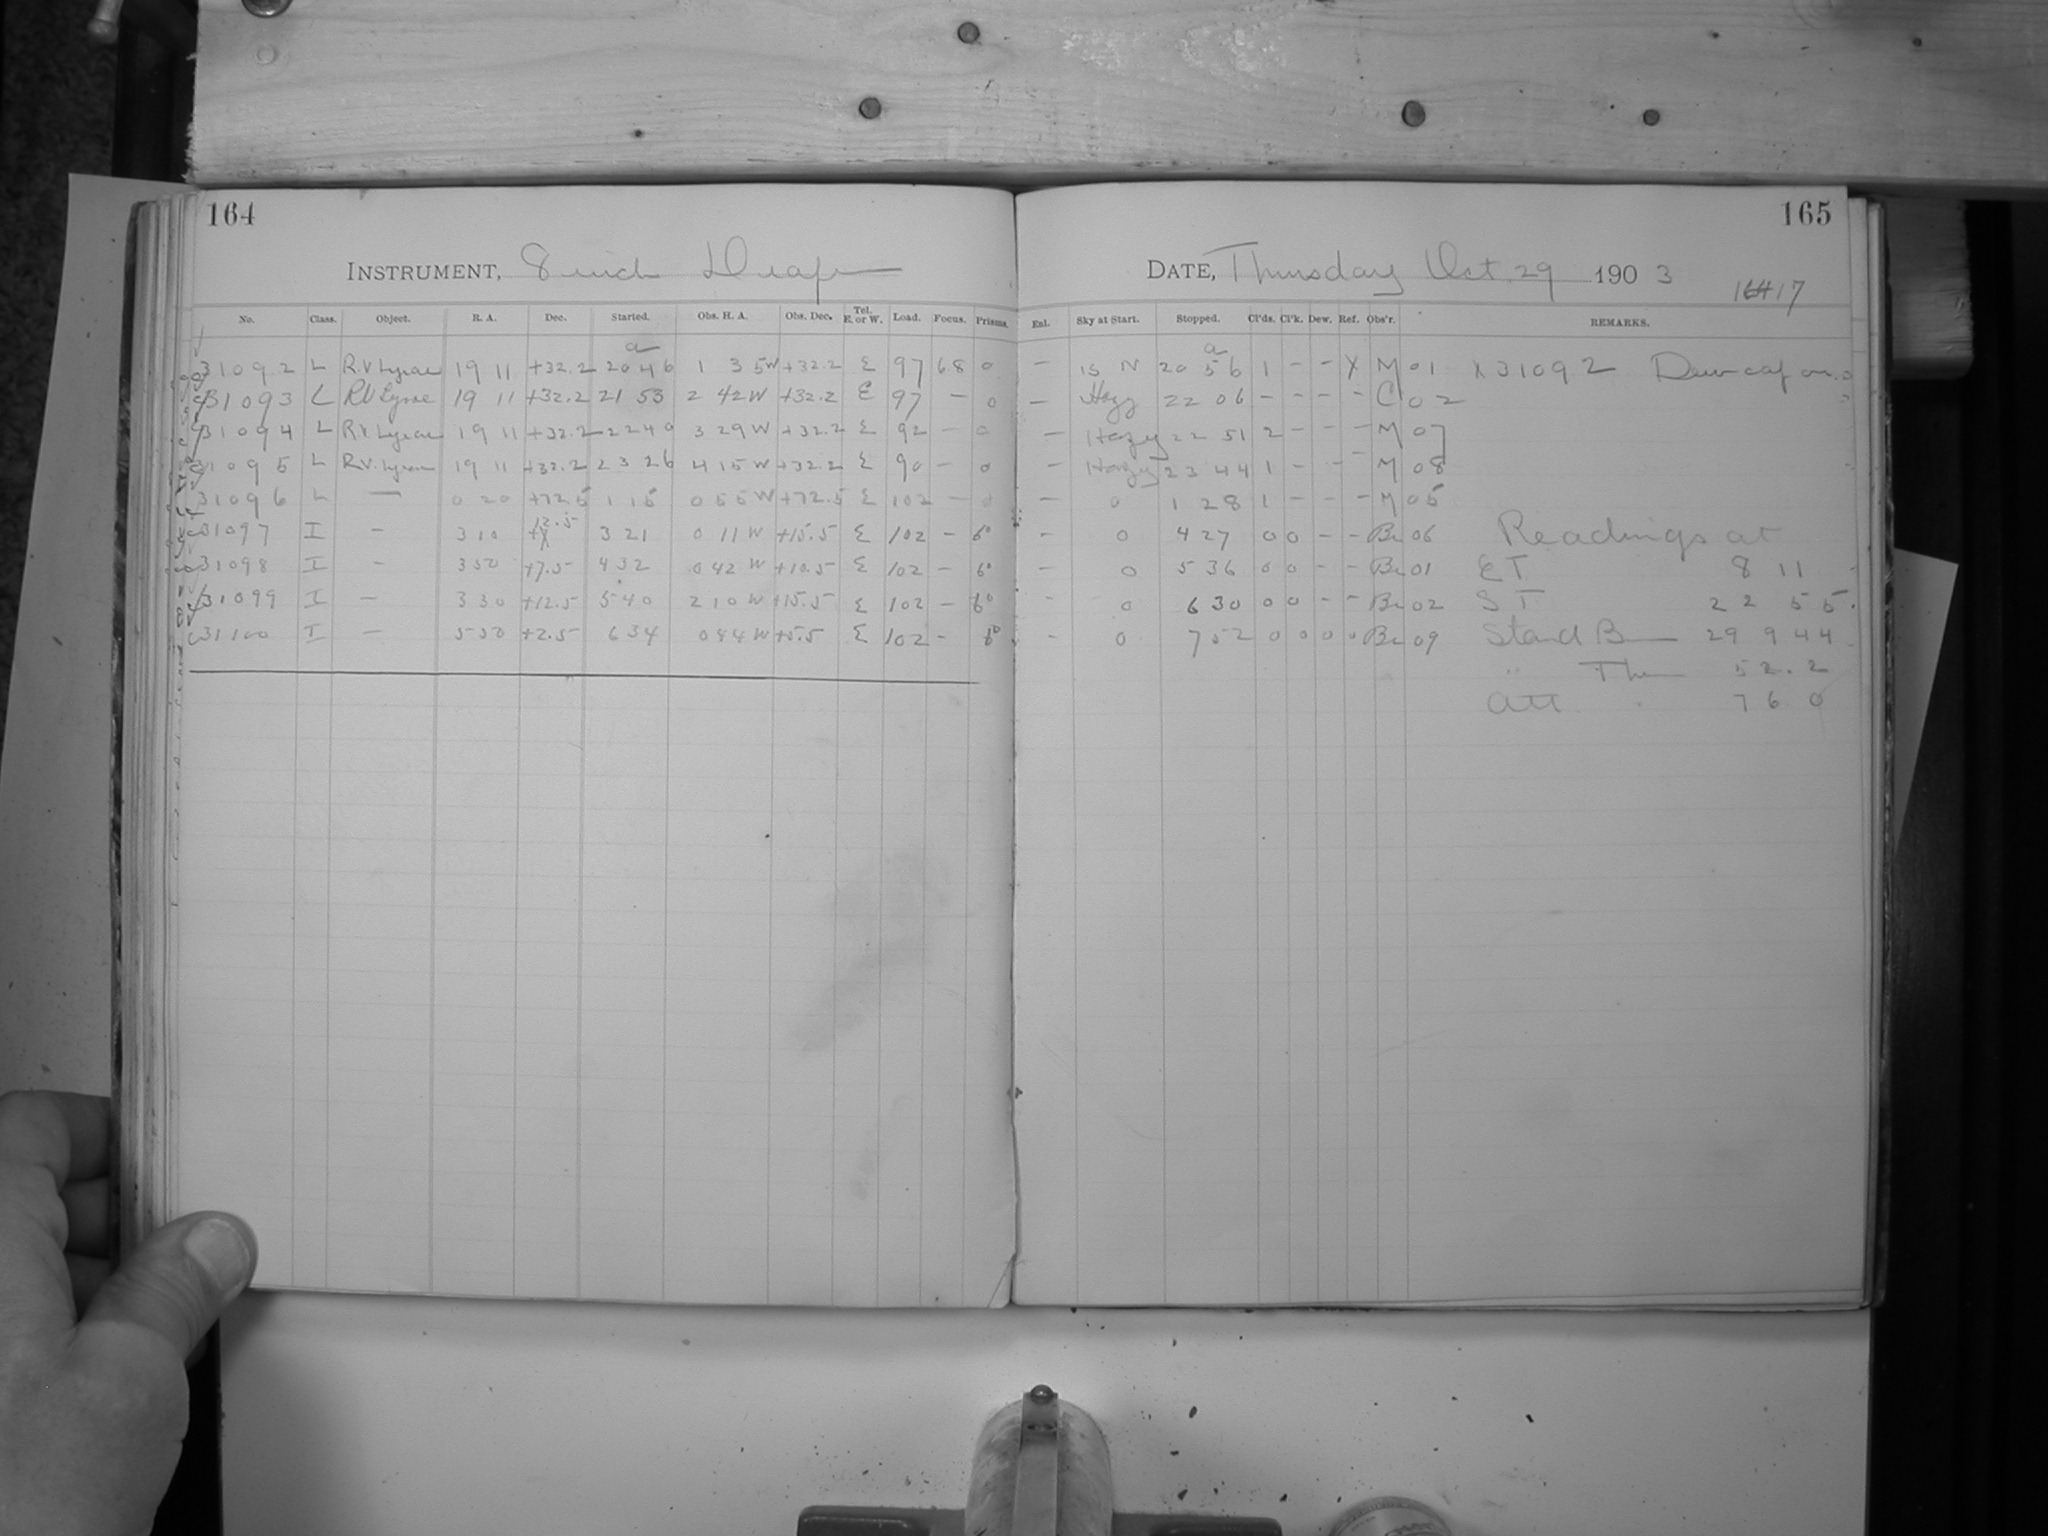 164
INSTRUMENT, 8 inch Draper
No. Class. Object. R. A. Dec. Started. Obs. H. A. Obs. Dec. Tel. E. or W. Load. Focus. Prisms.
a
31092 L R.V Lyrae 19 11 +32.2 20 46 1 35W +32.2 E 97 68 0
31093 L RV Lyrae 19 11 +32.2 21 53 2 42W +32.2 E 97 – 0
31094 L R.V. Lyrae 19 11 +32.2 22 40 3 29W +32.2 E 92 – 0
31095 L R.V. Lyrae 19 11 +32.2 23 26 4 15W +32.2 E 90 – 0
31096 L — 0 20 +72.5 1 15 0 55W +72.5 E 102 –
31097 I – 3 10 12.5 3 21 0 11W +15.5 E 102 – 6°
31098 I – 350 +7.5 4 32 0 42 W +10.5 E 102 – 6°
31099 I – 3 30 +12.5 5 40 2 10W +15.5 E 102 – 6°
31100 I – 550 +2.5 6 34 0 44W +5.5 E 102 – 6°
165
DATE, Thursday Oct. 29 1903
17
Enl. Sky at Start. Stopped. Cl'ds. Cl'k. Dew. Ref. Obs'r. REMARKS.
a
– IS N 20 56 1 – – X M 01 X 31092 Dewcap on.
– Hazy 22 06 – – – – C 02
– Hazy 22 51 2 – – – M 07
– Hazy 23 44 1 – – – M 08
– 0 1 28 1 – – – M 05
– 0 4 27 0 0 – – Br 06 Readings at
– 0 5 36 0 0 – – Br 01 ET 8 11
– 0 6 30 0 0 – – Br 02 ST 22 55
– 0 7 52 0 0 0 0 Br 09 Stand B 29 944
" Ther 52.2
Att 76 0